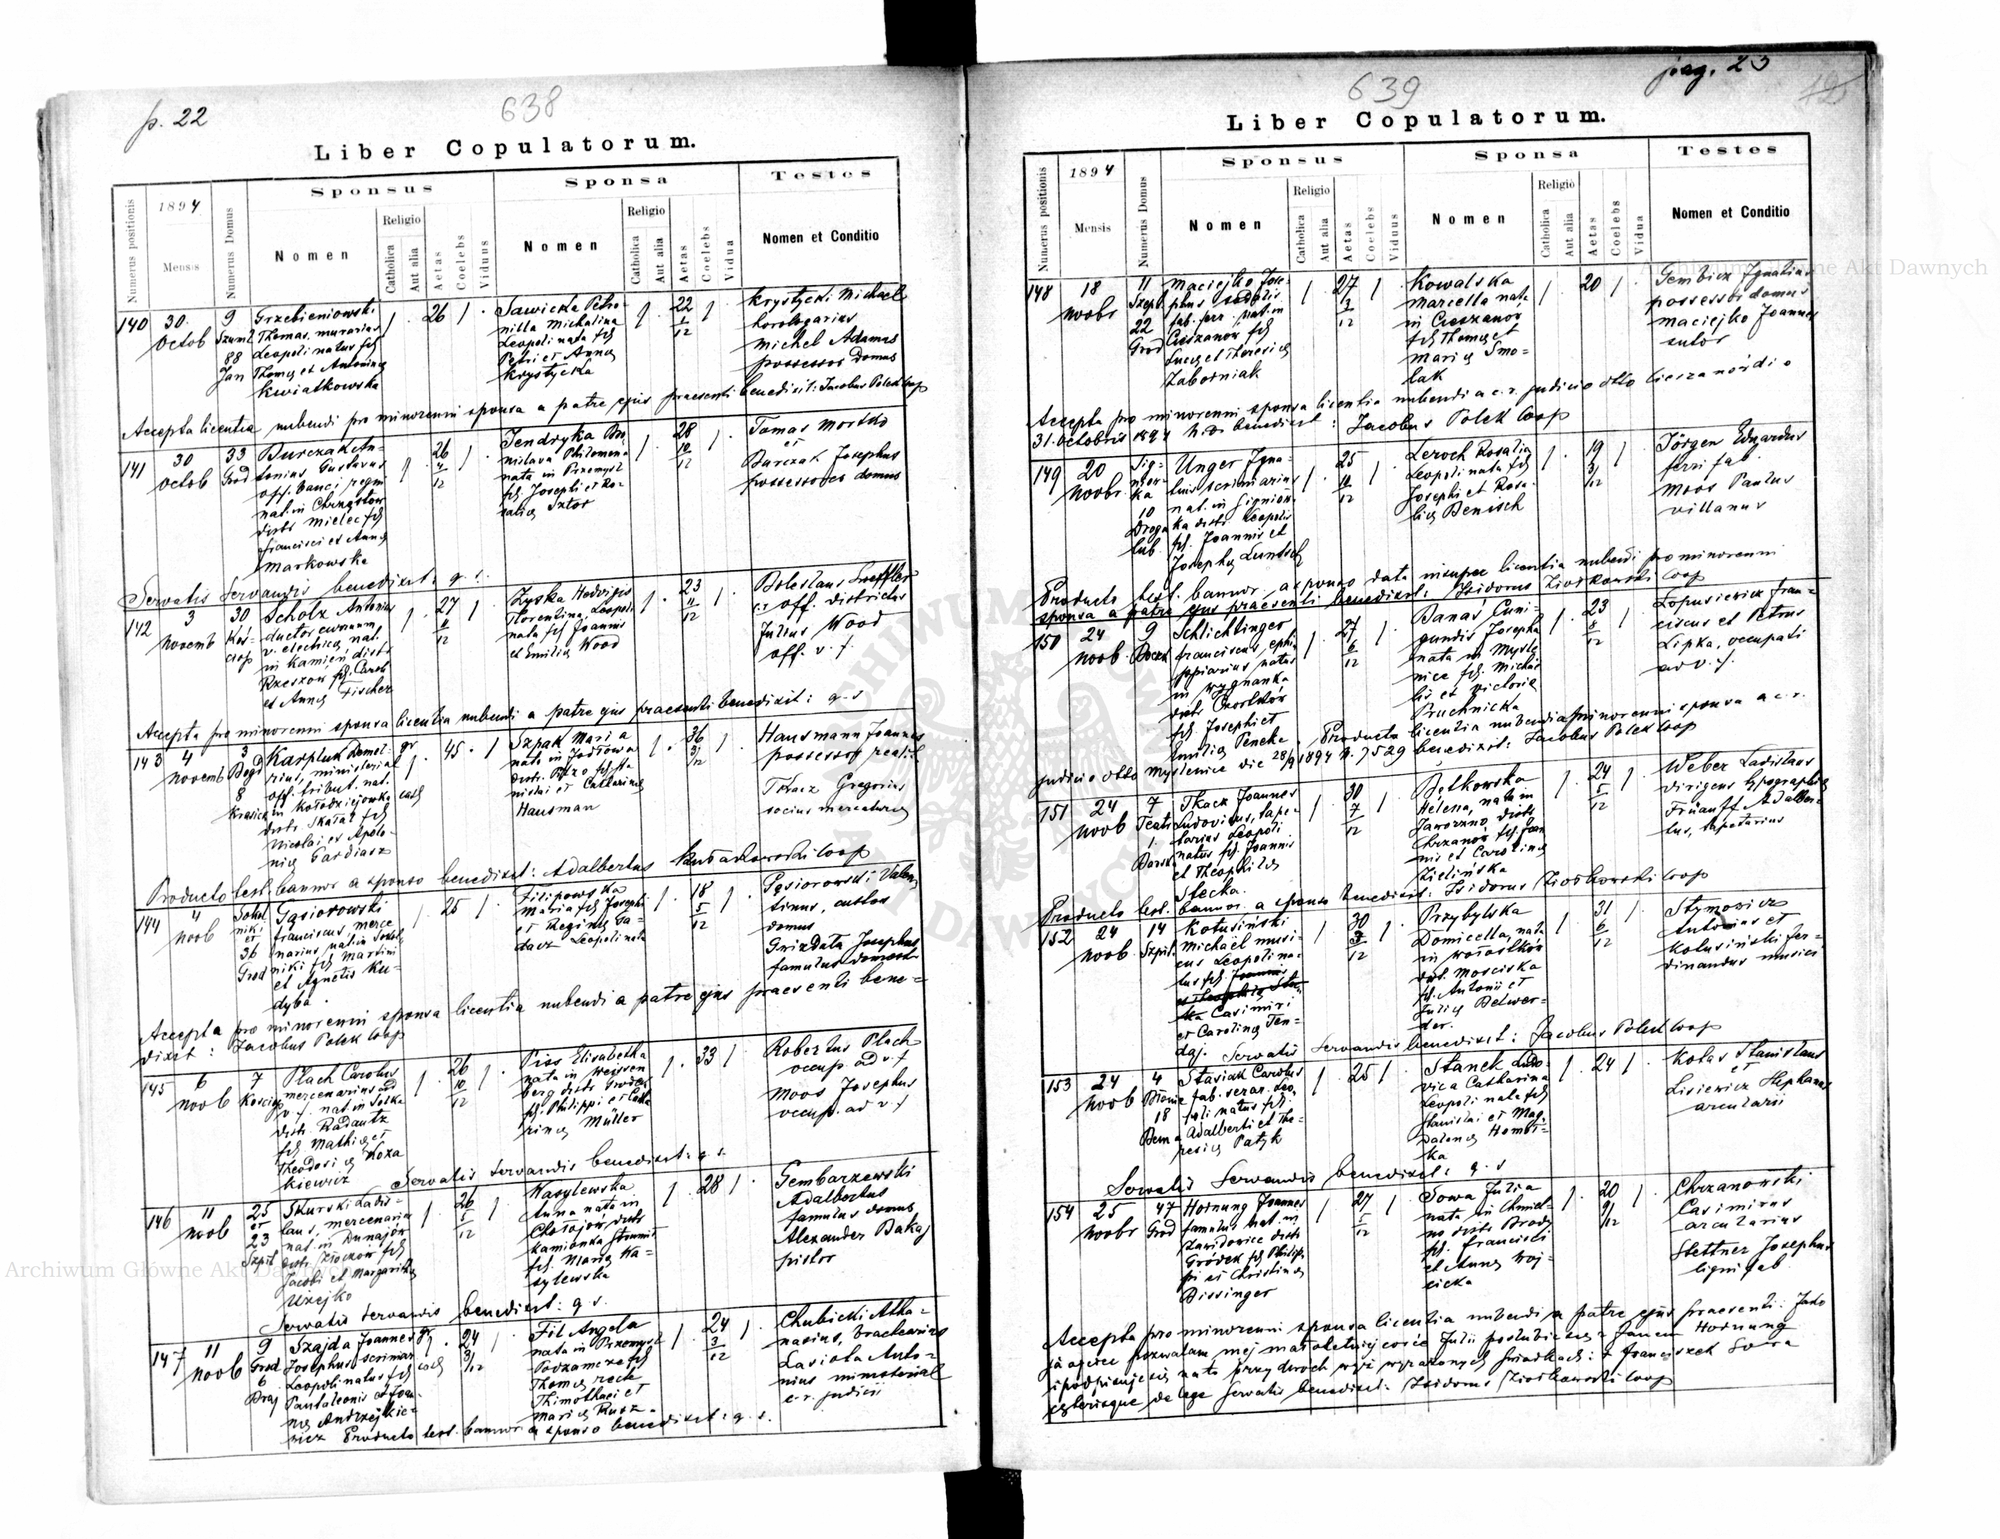 p. 22
638
Liber Copulatorum.
Numerus positionis
1894
Mensis
Numerus Domus
Sponsus
Nomen
Religio
Catholica
Aut alia
Aetas
Coelebs
Viduus
Sponsa
Nomen
Religio
Catholica
Aut alia
Aetas
Coelebs
Vidua
Testes
Nomen et Conditio
140
30
Octob
9
88
Jan
Grzebieniowski
Thomas, murarius
Leopoli natus fil
Thomae et Antoninae
Kwiatkowska
26
Sawicka Petro-
nilla Michalina
Leopoli nata fil
Petri et Annae
Krystycka
22
1
12
Krystycki Michael
horologarius
Michel Adamus
possessor domus
Accepta licentia nubendi pro minorenni sponsa a patre ejus praesenti benedixit: Jacobus Polek Coop
141
30
Octob
33
Grod
Burczak An-
tonius Gustavus
off. banci regni
nat. in
distr Mielec fil
Francisci et Annae
Markowska
26
12
Jendryka Bro-
nislava Philomena
nata in Przemyśl
fil. Josephi et Ro-
saliae Sztor
28
10
12
Tomas
et
Burczak Josephus
possessores domus
Servatis Servandis benedixit: q. s.
142
3
Novemb
30
Kos-
ciop
Scholz Antonius
ductor curruum
v. electricae, nat.
in Kamień, distr
Rzeszow fil. Caroli
et Annae Fischer
27
12
Zyska Hedvigis
Florentina, Leopoli
nata fil Joannis
et Emiliae Wood
23
11
12
Boleslaus
c.r. off. districtus
Julius Wood
off. v. f.
Accepta pro minorenni sponsa licentia nubendi a patre ejus praesenti benedixit: q. s
143
4
Novemb
3
8
Krasick
Karpluk Deme-
trius, ministerial
off. tribut. nat.
in Kołodziejowka
distr Skałat fil
Nicolai et Apolo-
niae Gardiasz
gr
cath
45
Szpak Maria
nata in Jodłowa
distr. Pilzno fil Sta
nislai et Catharinae
Hausman
36
3
12
Hausmann Joannes
possessor realit
Tkacz Gregorius
socius mercatura
Producto test. bannor a sponso benedixit: Adalbertus Coop
144
4
Noob
Sokol
niki
et
36
Grod
Gąsiorowski
Franciscus merce
narius, nat. in Sokol
niki fil Martini
et Agnetis Ku-
dyba
25
Filipowska
Maria fil Josephi
et Reginae
Leopoli nata
18
5
12
Gąsiorowski Valen
tinus, custos
domus
Gwizdała Josephus
famulus domest
Accepta pro minorenni sponsa licentia nubendi a patre ejus praesenti bene-
dixit: Jacobus Polek Coop
145
6
Noob
7
Kosciop
Plach Carolus
mercenarius ad
v. f. nat. in
distr. Radautz
fil Mathiae et
Theodosiae Koza
kiewicz
26
10
12
Piros Elisabetha
nata in Weissen
berg distr Grodek
fil. Philippi et Catha
rinae Müller
33
Robertus Plach
occup. ad v. f
Moos Josephus
occup. ad v. f
Servatis servandis benedixit: q. s.
146
11
Noob
25
et
23
Szpit
Skurski Ladis-
laus, mercenarius
nat. in Dunajów
distr. Złoczów fil
Jacobi et Margarithae
Użejko
26
5
12
Wasylewska
Anna nata in
Chołojow distr
Kamionka Strumił
fil. Maria Wa-
sylewska
28
Gembarzewski
Adalbertus
famulus domus
Alexander Bakaj
pistor
Servatis servandis benedixit: q s.
147
11
Noob
9
Grod
6
Szajda Joannes
Josephus scriniar
Leopoli natus fil
Pantaleonis et Joan-
nae Andrzejkie-
wicz
gr
cath
24
3
12
Fil Angela
nata in Przemyśl
Podzamcze fil
Thomae recte
Thimothaei et
Mariae Kusz-
24
3
12
Chubicki Atha-
nasius,
Lasiota Anto-
nius ministerial
c. r. judicii
Producto test. bannor. a sponso benedixit: q. s.
pag. 23
639
Liber Copulatorum.
Numerus positionis
1894
Mensis
Numerus Domus
Sponsus
Nomen
Religio
Catholica
Aut alia
Aetas
Coelebs
Viduus
Sponsa
Nomen
Religio
Catholica
Aut alia
Aetas
Coelebs
Vidua
Testes
Nomen et Conditio
148
18
Noobr
11
Szept
22
Grod
Maciejko Jose-
phus sodalis
fab. ferr. nat. in
Cieszanów fil
Lucae et Theresiae
Zaborniak
27
3
12
Kowalska
Marcella nata
in Cieszanow
fil Thomae et
Mariae Smo-
lak
20
Gembicz Ignatius
possessor domus
Maciejko Joannes
sutor
Accepta pro minorenni sponsa licentia nubendi a c. r. judicio dtto Cieszanów ddo
31. Octobris 1894 N. D. benedixit: Jacobus Polek Coop
149
20
Noobr
Sig-
niow-
ka
10
Unger Igna-
tius scriniarius
nat. in Signiow-
ka distr Leopolis
fil. Joannis et
Josephae
25
10
12
Leroch Rosalia
Leopoli nata fil
Josephi et Rosa-
liae Benisch
19
3
12
Jörgen Eduardus
ferri fab.
Moos Paulus
villanus
Producto test. bannor, a sponso data nisupee licentia nubendi pro minorenni
sponsa a patre ejus praesenti benedixit: Isidorus Ziołkowski Coop
150
24
Noob
9
Schlichtinger
Franciscus ephi-
ppiarius natus
in Wygnanka
distr Czortków
fil Josephi et
Emiliae
27
6
12
Banaś Cuni-
gundis Josepha
nata in Myśle
nice fil. Michae
lis et Victoriae
Pruchnicka
23
8
12
Łopusiewicz Fran-
ciscus et Petrus
Lipka, occupati
ad v. f.
Producta licentia nubendi a minorenni sponsa a c. r.
judicio dtto Myślenice die 28/9 1894 N. 7529 benedixit: Jacobus Polek Coop
151
24
Noob
7
Teatr
1
Tkacz Joannes
Ludovicus, tape-
tarius Leopoli
natus fil Joannis
et Theophilae
Stecka
30
7
12
Bętkowska
Helena, nata in
Jaworzno, distr
Chrzanów fil. Joan
nis et Carolinae
Zielińska
24
5
12
Weber Ladislaus
dirigens typographiae
Früauff Adalber-
tus, tapetarius
Producto test. bannor. a sponso benedixit: Isidorus Ziołkowski Coop
152
24
Noob
14
Szpit
Kotusiński
Michael musi-
cus Leopoli na-
tus fil.
Casimiri
et Carolinae Ten-
daj.
30
12
Przybylska
Domicella, nata
in
distr. Mosciska
fil. Antonii et
Juliae Belwer-
der.
31
6
12
Szymowicz
Antonius et
Kotusiński Fer-
dinandus musici
Servatis servandis benedixit: Jacobus Polek Coop
153
24
Noob
4
18
Bema
Stasiak Carolus
fab. serar. Leo-
poli natus fil.
Adalberti et The-
resiae Patyk
25
Stanek Ludo-
vica Catharina
Leopoli nata fil
Stanislai et Mag-
dalenae
24
Kolas Stanislaus
et
Lisiewicz Stephanus
arcularii
Servatis Servandis benedixit: q. s
154
25
Noobr
47
Grod
Hornung Joannes
famulus nat. in
Zawidowice distr
Gródek fil Philip-
pi et Christinae
Bissinger
27
1
12
Sowa Julia
nata in
distr Brody
fil. Francisci
et Annae Woj-
cicka
20
9
12
Chrzanowski
Casimirus
arcularius
Stettner Josephus
ligni fab
Accepta pro minorenni sponsa licentia nubendi a patre ejus praesenti: Jako
ojciec pozwalam mej małoletniej córce Julii poslubić się z Janem Hornung
i podpisuję się na to przy dwoch wyż wyrażonych świadkach: Franciszek Sowa
ceterisque de lege servatis benedixit: Isidorus Ziołkowski Coop
Archiwum Główne Akt Dawnych
Archiwum Główne Akt Dawnych
ARCHIWUM GŁÓWNE AKT DAWNYCH